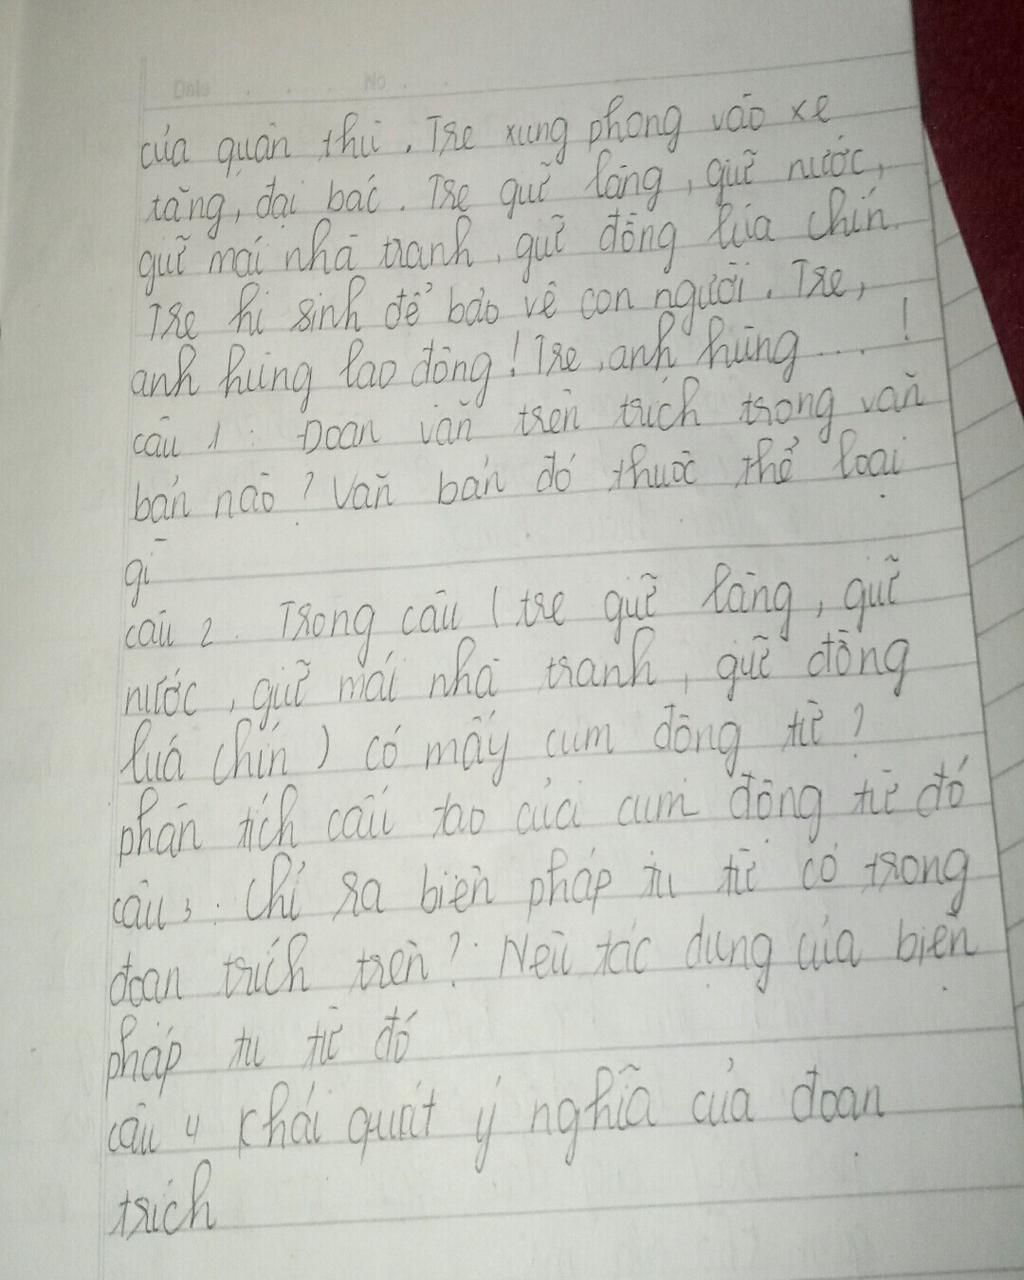 Date No
của quân thù. Tre xung phong vào xe
tăng, đại bác. Tre giữ làng, giữ nước,
giữ mái nhà tranh, giữ đồng lúa chín.
Tre hi sinh để bảo vệ con người. Tre,
anh hùng lao động! Tre, anh hùng ....!
câu 1: Đoạn văn trên trích trong văn
bản nào? Văn bản đó thuộc thể loại
gì
câu 2. Trong câu (tre giữ làng, giữ
nước, giữ mái nhà tranh, giữ đồng
luá chín) có mấy cụm động từ?
phân tích cấu tạo của cụm động từ đó
câu 3: Chỉ ra biện pháp tu từ có trong
đoạn trích trên? Nêu tác dụng của biện
pháp tu từ đó
câu 4 Khái quát ý nghĩa của đoạn
trích